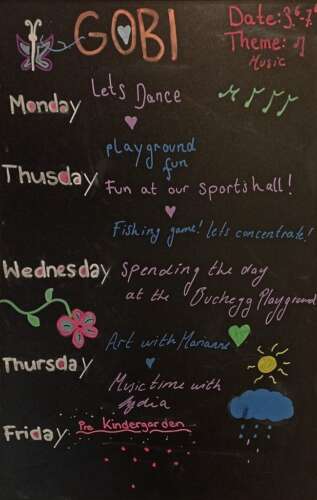 GOBI
Date: 3⁶-7⁶
Theme: ♫
Music
Monday Lets Dance
playground
fun
Thusday Fun at our Sportshall!
Fishing game! lets concentrate!
Wednesday Spending the day
at the Buchegg Playground
Art with Marianne
Thursday
Music time with
Lydia
Friday Pre Kindergarden